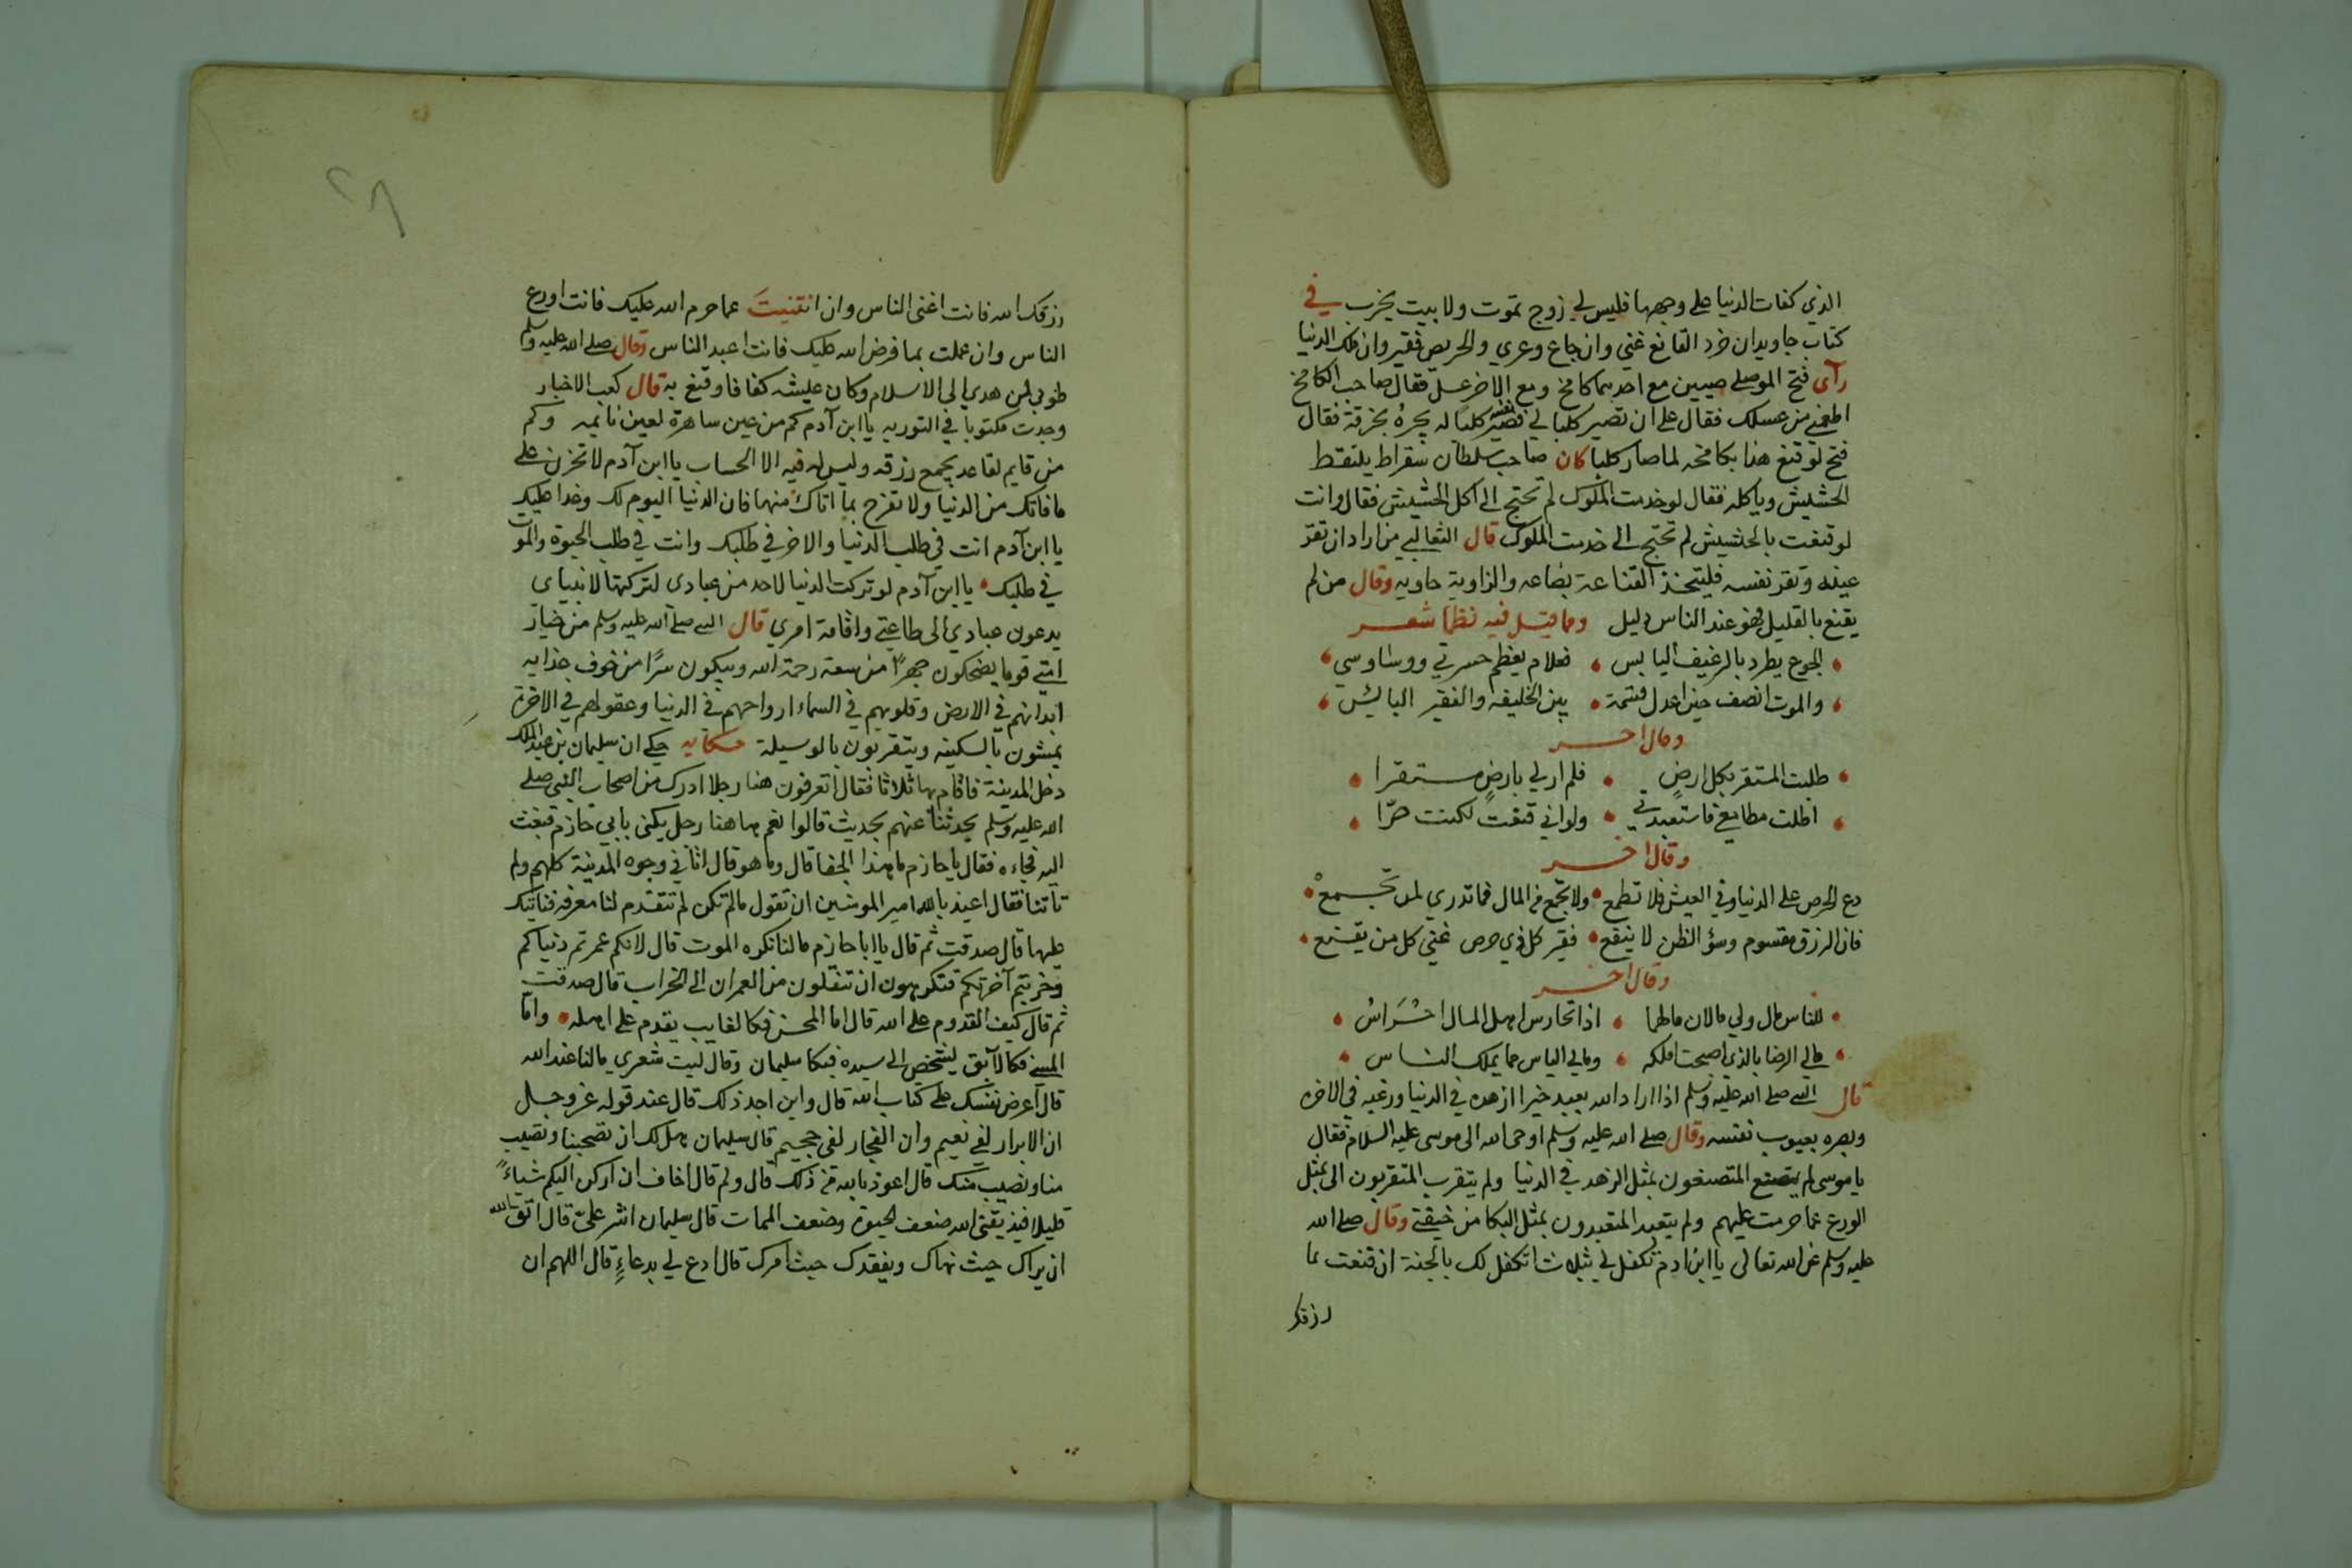 الذي كفات الدنيا على وجهها فليس لي زوج تموت ولا بيت يخرب في
كتاب جاويدان خرد القانع غني وان جاع وعري والحريص فقير وان ملك الدنيا
رآى فتح الموصلي صبيين مع احدهما كامخ ومع الاخر عسل فقال صاحب الكامخ
اطعمني من عسلك فقال على ان تصير كلبا لي فصير نفسه كلبا له يجره بخرقة فقال
فتح لو قنع هذا بكامخه لما صار كلبا كان صاحب سلطان سقراط يلتقط
الحشيش وياكله فقال لو خدمت الملوك لم تحتج الى اكل الحشيش فقال وانت
لو قنعت بالحشيش لم تحتج الى خدمت الملوك قال الثعالبي من اراد ان تقر
عينه وتقر نفسه فليتخذ القناعة بضاعه والزاوية حاويه وقال من لم
يقنع بالقليل فهو عند الناس دليل ومما قيل فيه نظما شعر
الجوع يطرد بالرغيف اليابس فعلام يعظم حسرتي ووساوسي
والموت انصف حين اعدل قسمة بين الخليفه والفقير البائس
وقال اخر
طلبت المستقر بكل ارض فلم ار لي بارض مستقرا
اطلت مطامعي فاستعبدتني ولو اني قنعت لكنت حرّا
وقال اخر
دع الحرص على الدنيا وفي العيش فلا تطمع ولا تجمع من المال فما تدري لمن تجمع
فان الرزق مقسوم وسؤ الظن لا ينفع فقير كل ذي حرص غني كل من يقنع
وقال اخر
للناس مال ولي مالان مالهما اذا تحارس اهل المال احراس
مالي الرضا بالذي اصبحت املكه ومالي الياس مما يملك الناس
قال النبي صلى الله عليه وسلم اذا اراد الله بعبد خيرا ازهده في الدنيا ورغبه في الاخره
وبصره بعيوب نفسه وقال صلى الله عليه وسلم اوحى الله الى موسى عليه السلام فقال
يا موسى لم يتصنع المتصنعون بمثل الزهد في الدنيا ولم يتقرب المتقربون الى بمثل
الورع عما حرمت عليهم ولم يتعبد المتعبدون بمثل البكا من خيفتي وقال صلى الله
عليه وسلم عن الله تعالى يا ابن ادم تكفل لي بثلاث اتكفل لك بالجنة ان قنعت بما
رزقك
رزقك الله فانت اغنى الناس وان انتهيت عما حرم الله عليك فانت اورع
الناس وان عملت بما فرض الله عليك فانت اعبد الناس وقال صلى الله عليه وسلم
طوبى لمن هدي الى الاسلام وكان عليشه كفافا وقنع به قال كعب الاخبار
وجدت مكتوبا في التوريه يا ابن آدم كم من عين ساهرة لعين نائمه وكم
من قايم لقاعد يجمع رزقه وليس له فيه الا الحساب يا ابن آدم لا تحزن على
ما فاتك من الدنيا ولا تفرح بما اتاك منها فان الدنيا اليوم لك وغدا عليك
يا ابن آدم انت في طلب الدنيا والاخر في طلبك وانت في طلب الحيوة والموت
في طلبك يا ابن آدم لو تركت الدنيا لاحد من عبادي لتركتها لانبياي
يدعون عبادي الى طاعتي واقامة امري قال النبي صلى الله عليه وسلم من خيار
امتي قوما يضحكون جهرًا من سعة رحمة الله ويبكون سرًا من خوف عذابه
ابدانهم في الارض وقلوبهم في السماء ارواحهم في الدنيا وعقولهم في الاخرة
يمشون بالسكينه ويتقربون بالوسيلة حكايه حكي ان سليمان بن عبد الملك
دخل المدينة فاقام بها ثلاثا فقال اتعرفون هنا رجلا ادرك من اصحاب النبي صلى
الله عليه وسلم يحدثنا عنهم بحديث قالوا نعم هاهنا رجل يكنى بابي حازم فبعث
اليه فجاءه فقال يا حازم ما هذا الجفا قال وما هو قال اتاني وجوه المدينة كلهم ولم
تاتنا فقال اعيذ بالله امير المومنين ان تقول ما لم تكن لم تتقدم لنا معرفه فناتيك
عليها قال صدقت ثم قال يا ابا حازم مالنا نكره الموت قال لانكم عمرتم دنياكم
وخربتم آخرتكم فتكرهون ان تنقلون من العمران الى الخراب قال صدقت
ثم قال كيف القدوم على الله قال اما المحسن فكالغايب يقدم على اهله وامّا
المسئ فكالآبق يشخص الى سيده فبكا سليمان وقال ليت شعري مالنا عند الله
قال اعرض نفسك على كتاب الله قال واين اجد ذلك قال عند قوله عز وجل
ان الابرار لفي نعيم وان الفجار لفي جحيم قال سليمان هل لك ان تصحبنا وتصيب
منا ونصيب منك قال اعوذ بالله من ذلك قال ولم قال اخاف ان اركن اليكم شياءً
قليلا فيذيقنى الله ضعف الحيوة وضعف الممات قال سليمان اشر عليّ قال اتق الله
ان يراك حيث نهاك ويفقدك حيث امرك قال ادع لي بدعاءٍ قال اللهم ان